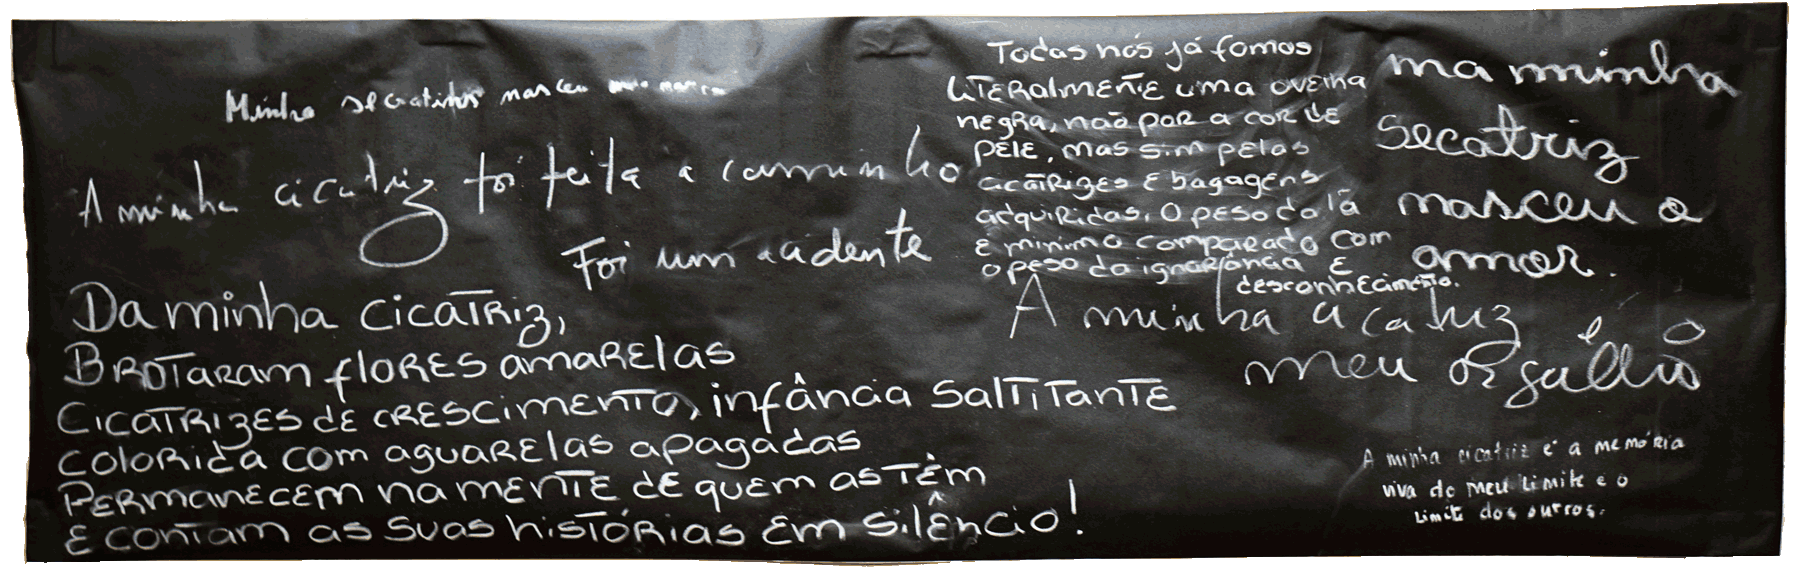 Minha secratinhs nasceu
A minha cicatriz foi feita a caminho
Foi um acidente
Da minha cicatriz,
Brotaram flores amarelas
Cicatrizes de crescimento, infância saltitante
colorida com aguarelas apagadas
Permanecem na mente de quem as têm
E contam as suas histórias em silêncio!
Todas nós já fomos
literalmente uma ovelha
negra, não por a cor de
pele, mas sim pelas
cicatrizes e bagagens
adquiridas. O peso da lã
e minimo comparado com
o peso da ignorância e
desconhecimento.
ma minha
secatriz
nasceu o
amor.
A minha cicatriz é o
meu orgulho
A minha cicatriz é a memória
viva do meu limite e o
limite dos outros.